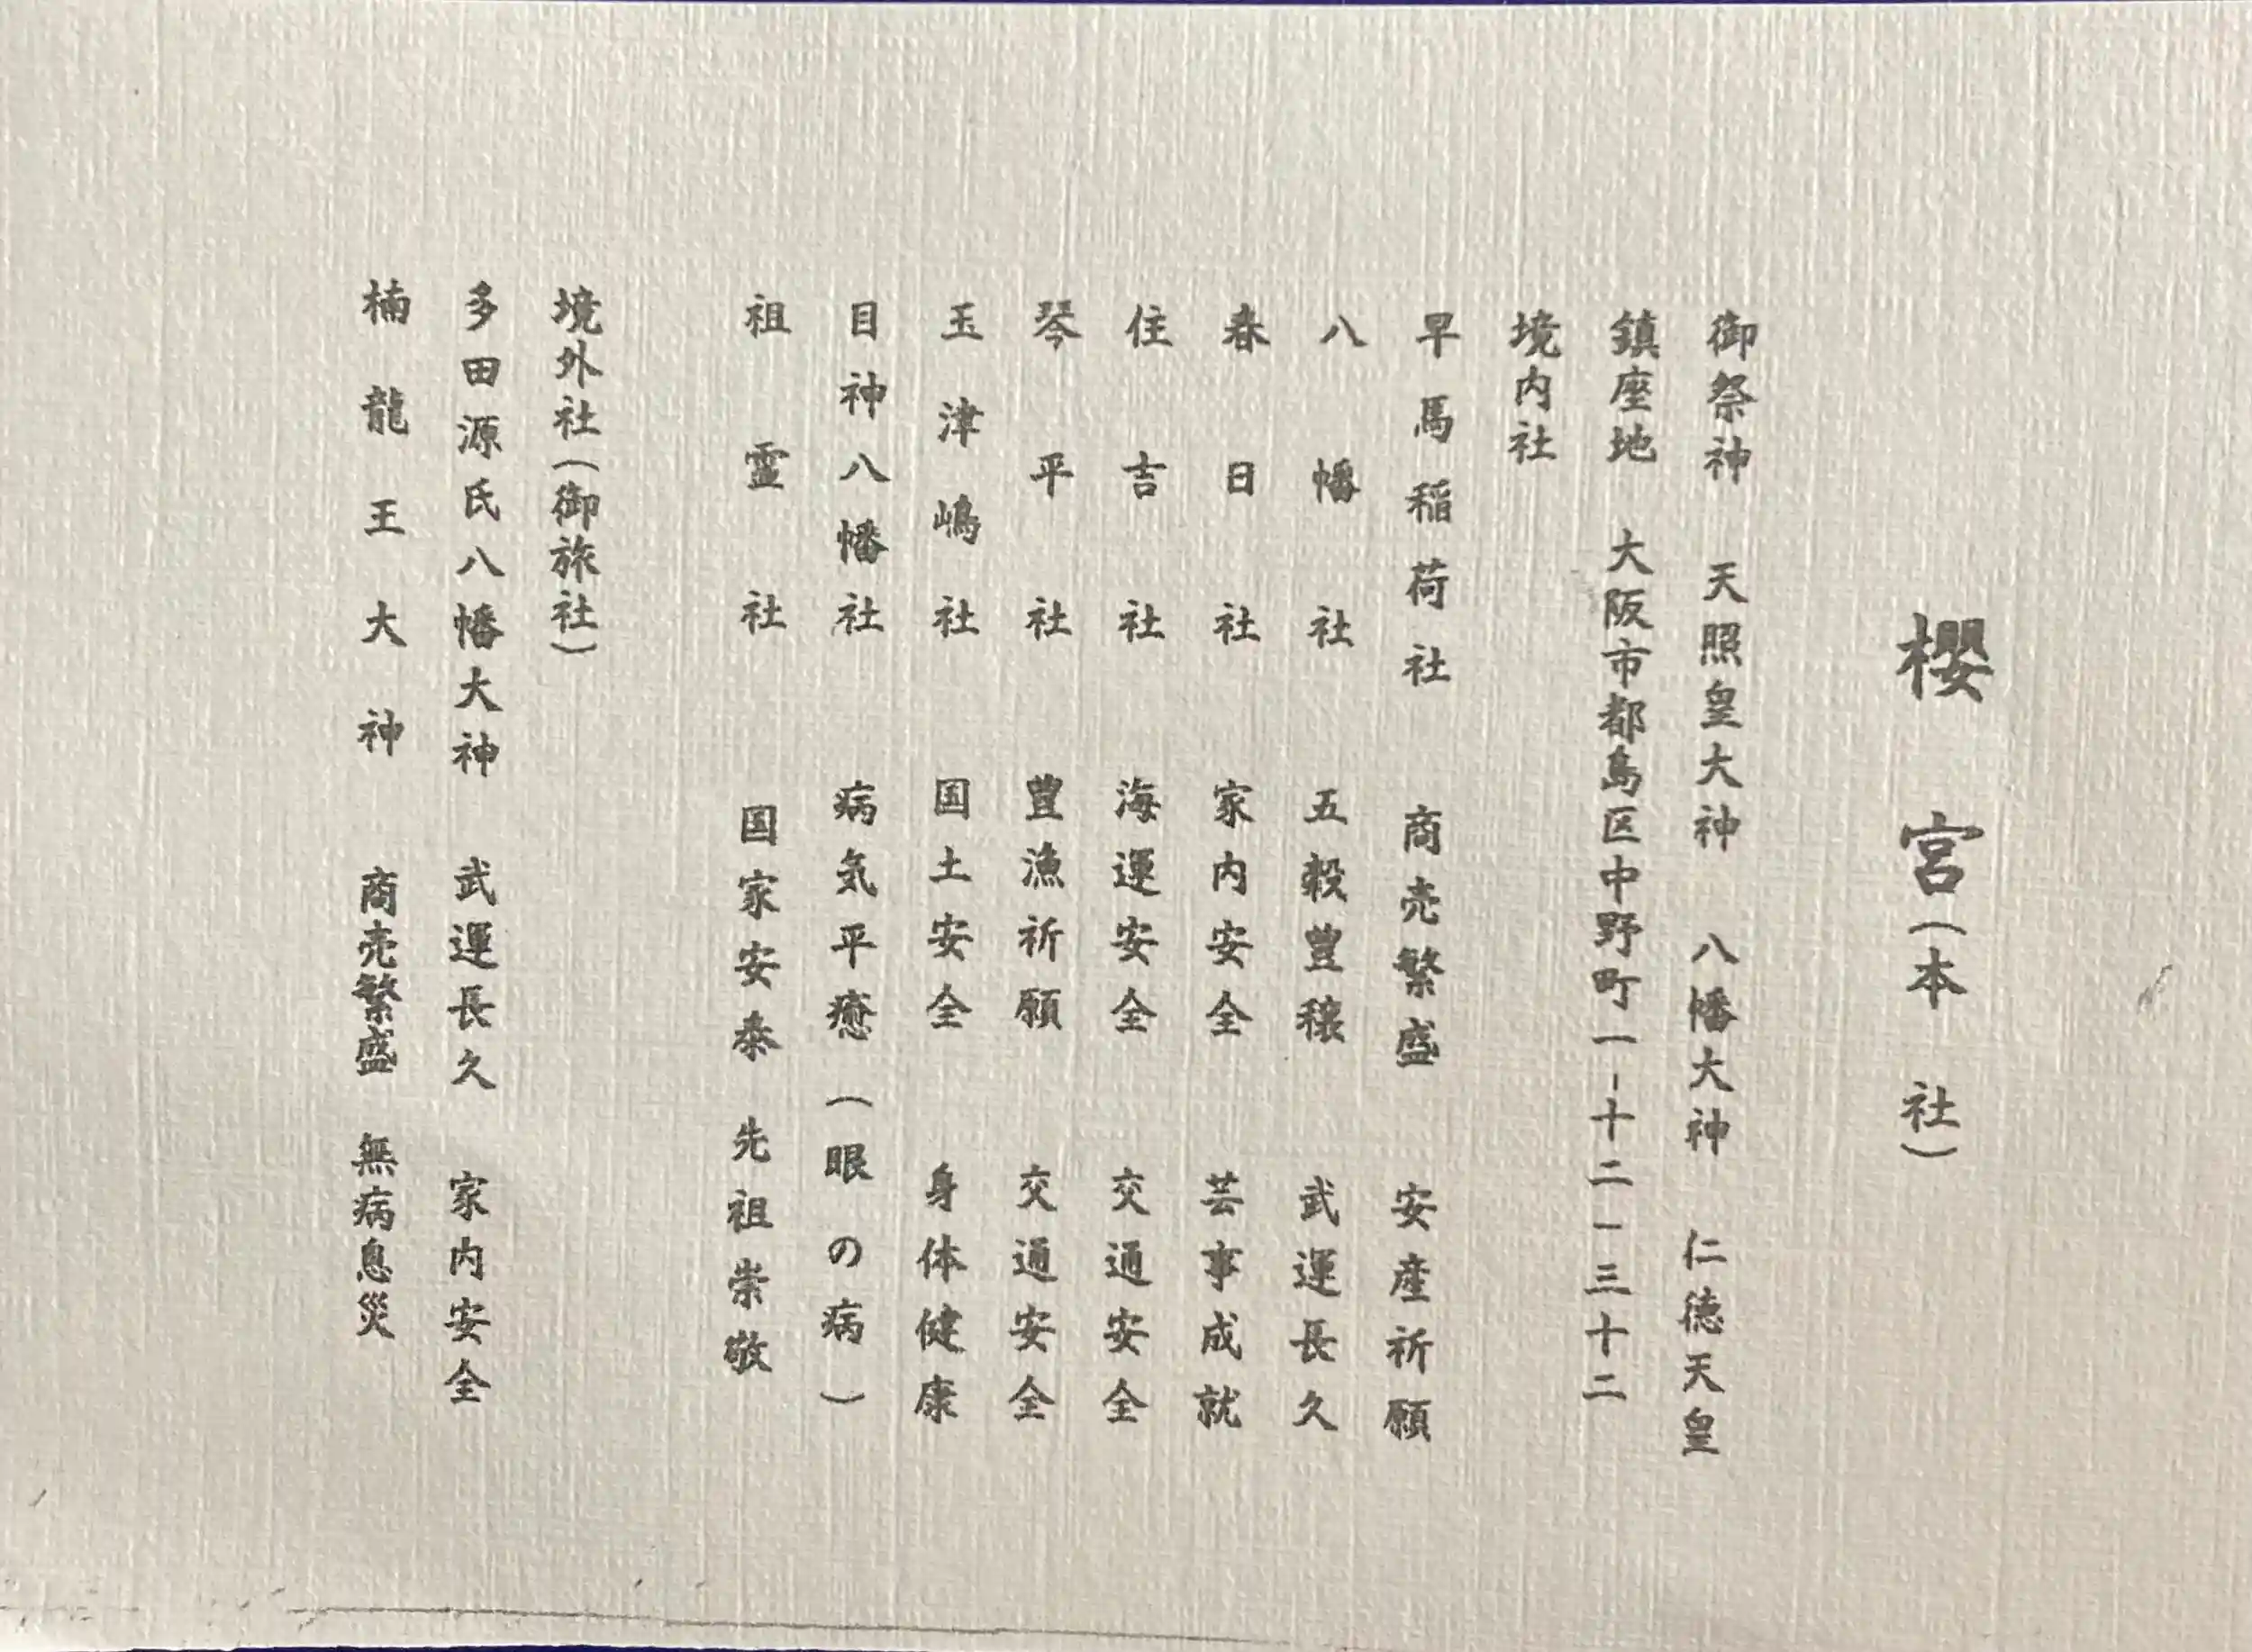 櫻宮(本社)
御祭神 天照皇大神 八幡大神 仁徳天皇
鎮座地 大阪市都島区中野町一-十二-三十二
境内社
早馬稲荷社 商売繁盛 安産祈願
八幡社 五穀豊穣 武運長久
春日社 家内安全 芸事成就
住吉社 海運安全 交通安全
琴平社 豊漁祈願 交通安全
玉津嶋社 国土安全 身体健康
目神八幡社 病気平癒(眼の病)
祖霊社 国家安泰 先祖崇敬
境外社(御旅社)
多田源氏八幡大神 武運長久 家内安全
楠龍王大神 商売繁盛 無病息災